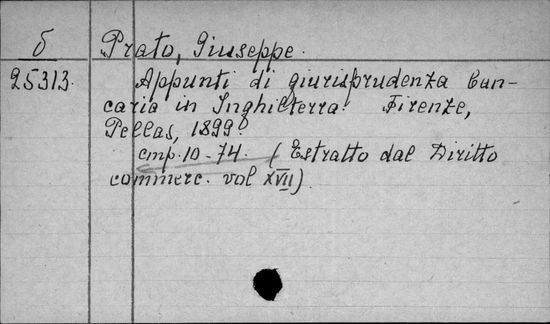 б Prato, Giuseppe.
25313. Appunti di giurisprudenza ban-
caria in Inghilterra. Firenze,
Pellas, 1899.
стр. 10-74. (Estratto dal Diritto
commerc. vol XVII).